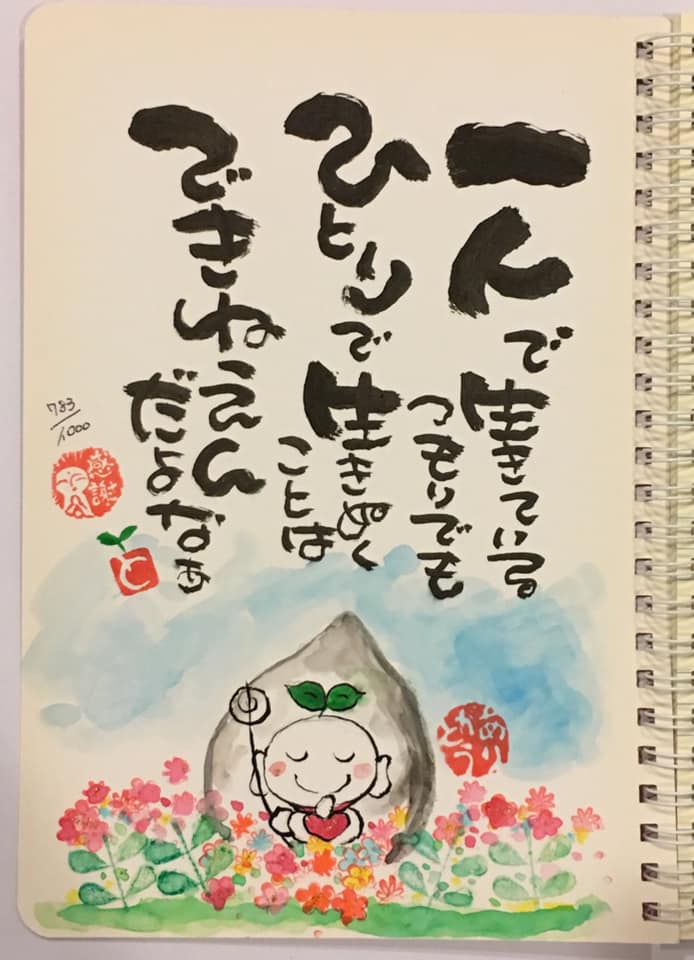 一人で生きている
つもりでも
ひとりで生きぬく
ことは
できねえん
だよなぁ
783/1000
感謝